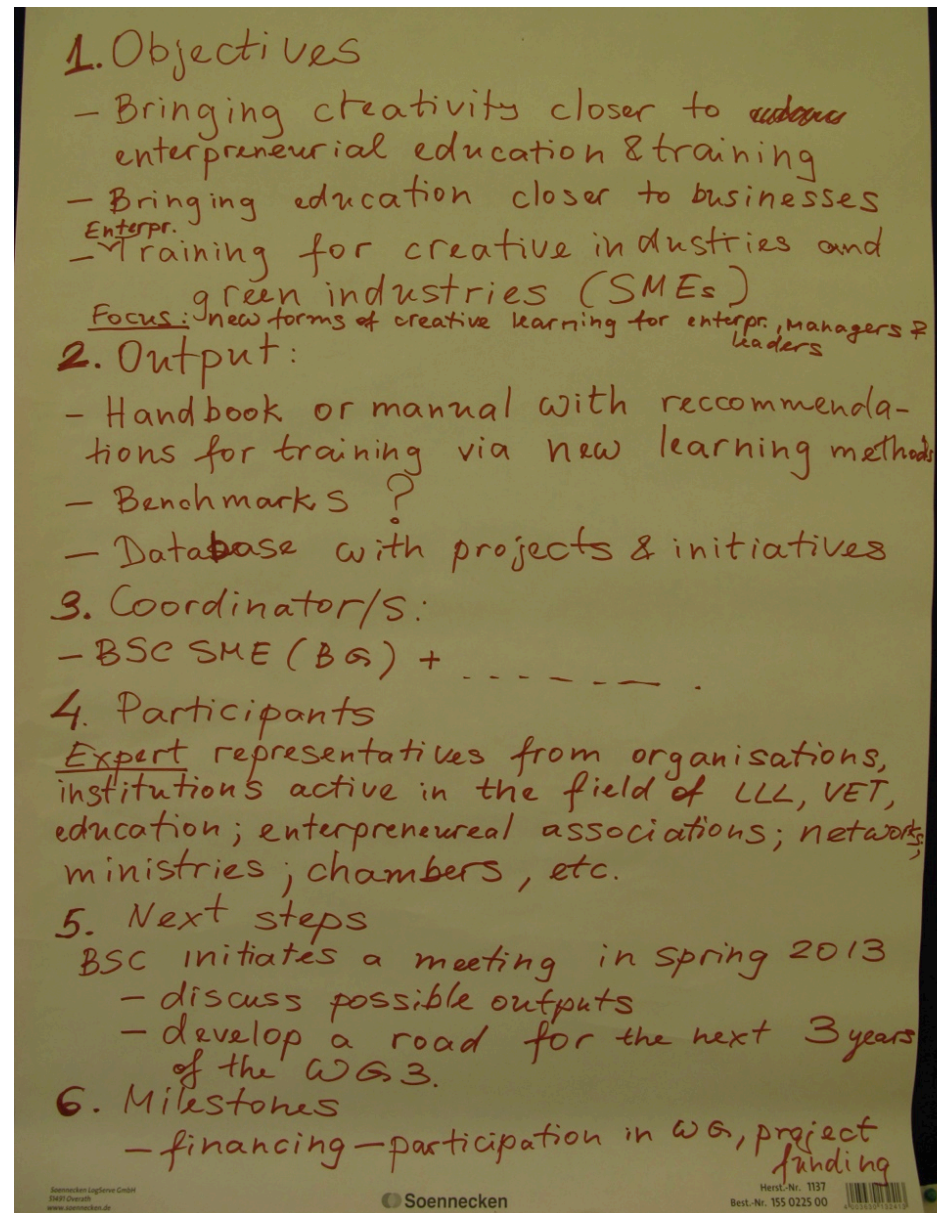 1. Objectives
- Bringing creativity closer to
enterpreneurial education & training
- Bringing education closer to businesses
Enterpr.
- Training for creative industries and
green industries (SMEs)
Focus: new forms of creative learning for enterpr., managers &
leaders
2. Output:
- Handbook or manual with reccommenda-
tions for training via new learning methods
- Benchmarks ?
- Database with projects & initiatives
3. Coordinator/s:
- BSC SME (BG) + _ _ _ _ _ _ _ .
4. Participants
Expert representatives from organisations,
institutions active in the field of LLL, VET,
education; enterpreneureal associations; networks;
ministries; chambers, etc.
5. Next steps
BSC initiates a meeting in spring 2013
- discuss possible outputs
- develop a road for the next 3 years
of the WG3.
6. Milestones
- financing - participation in WG, project
funding
Soennecken LogServe GmbH
51491 Overath
www.soennecken.de
Soennecken
Herst.-Nr. 1137
Best.-Nr. 155 0225 00